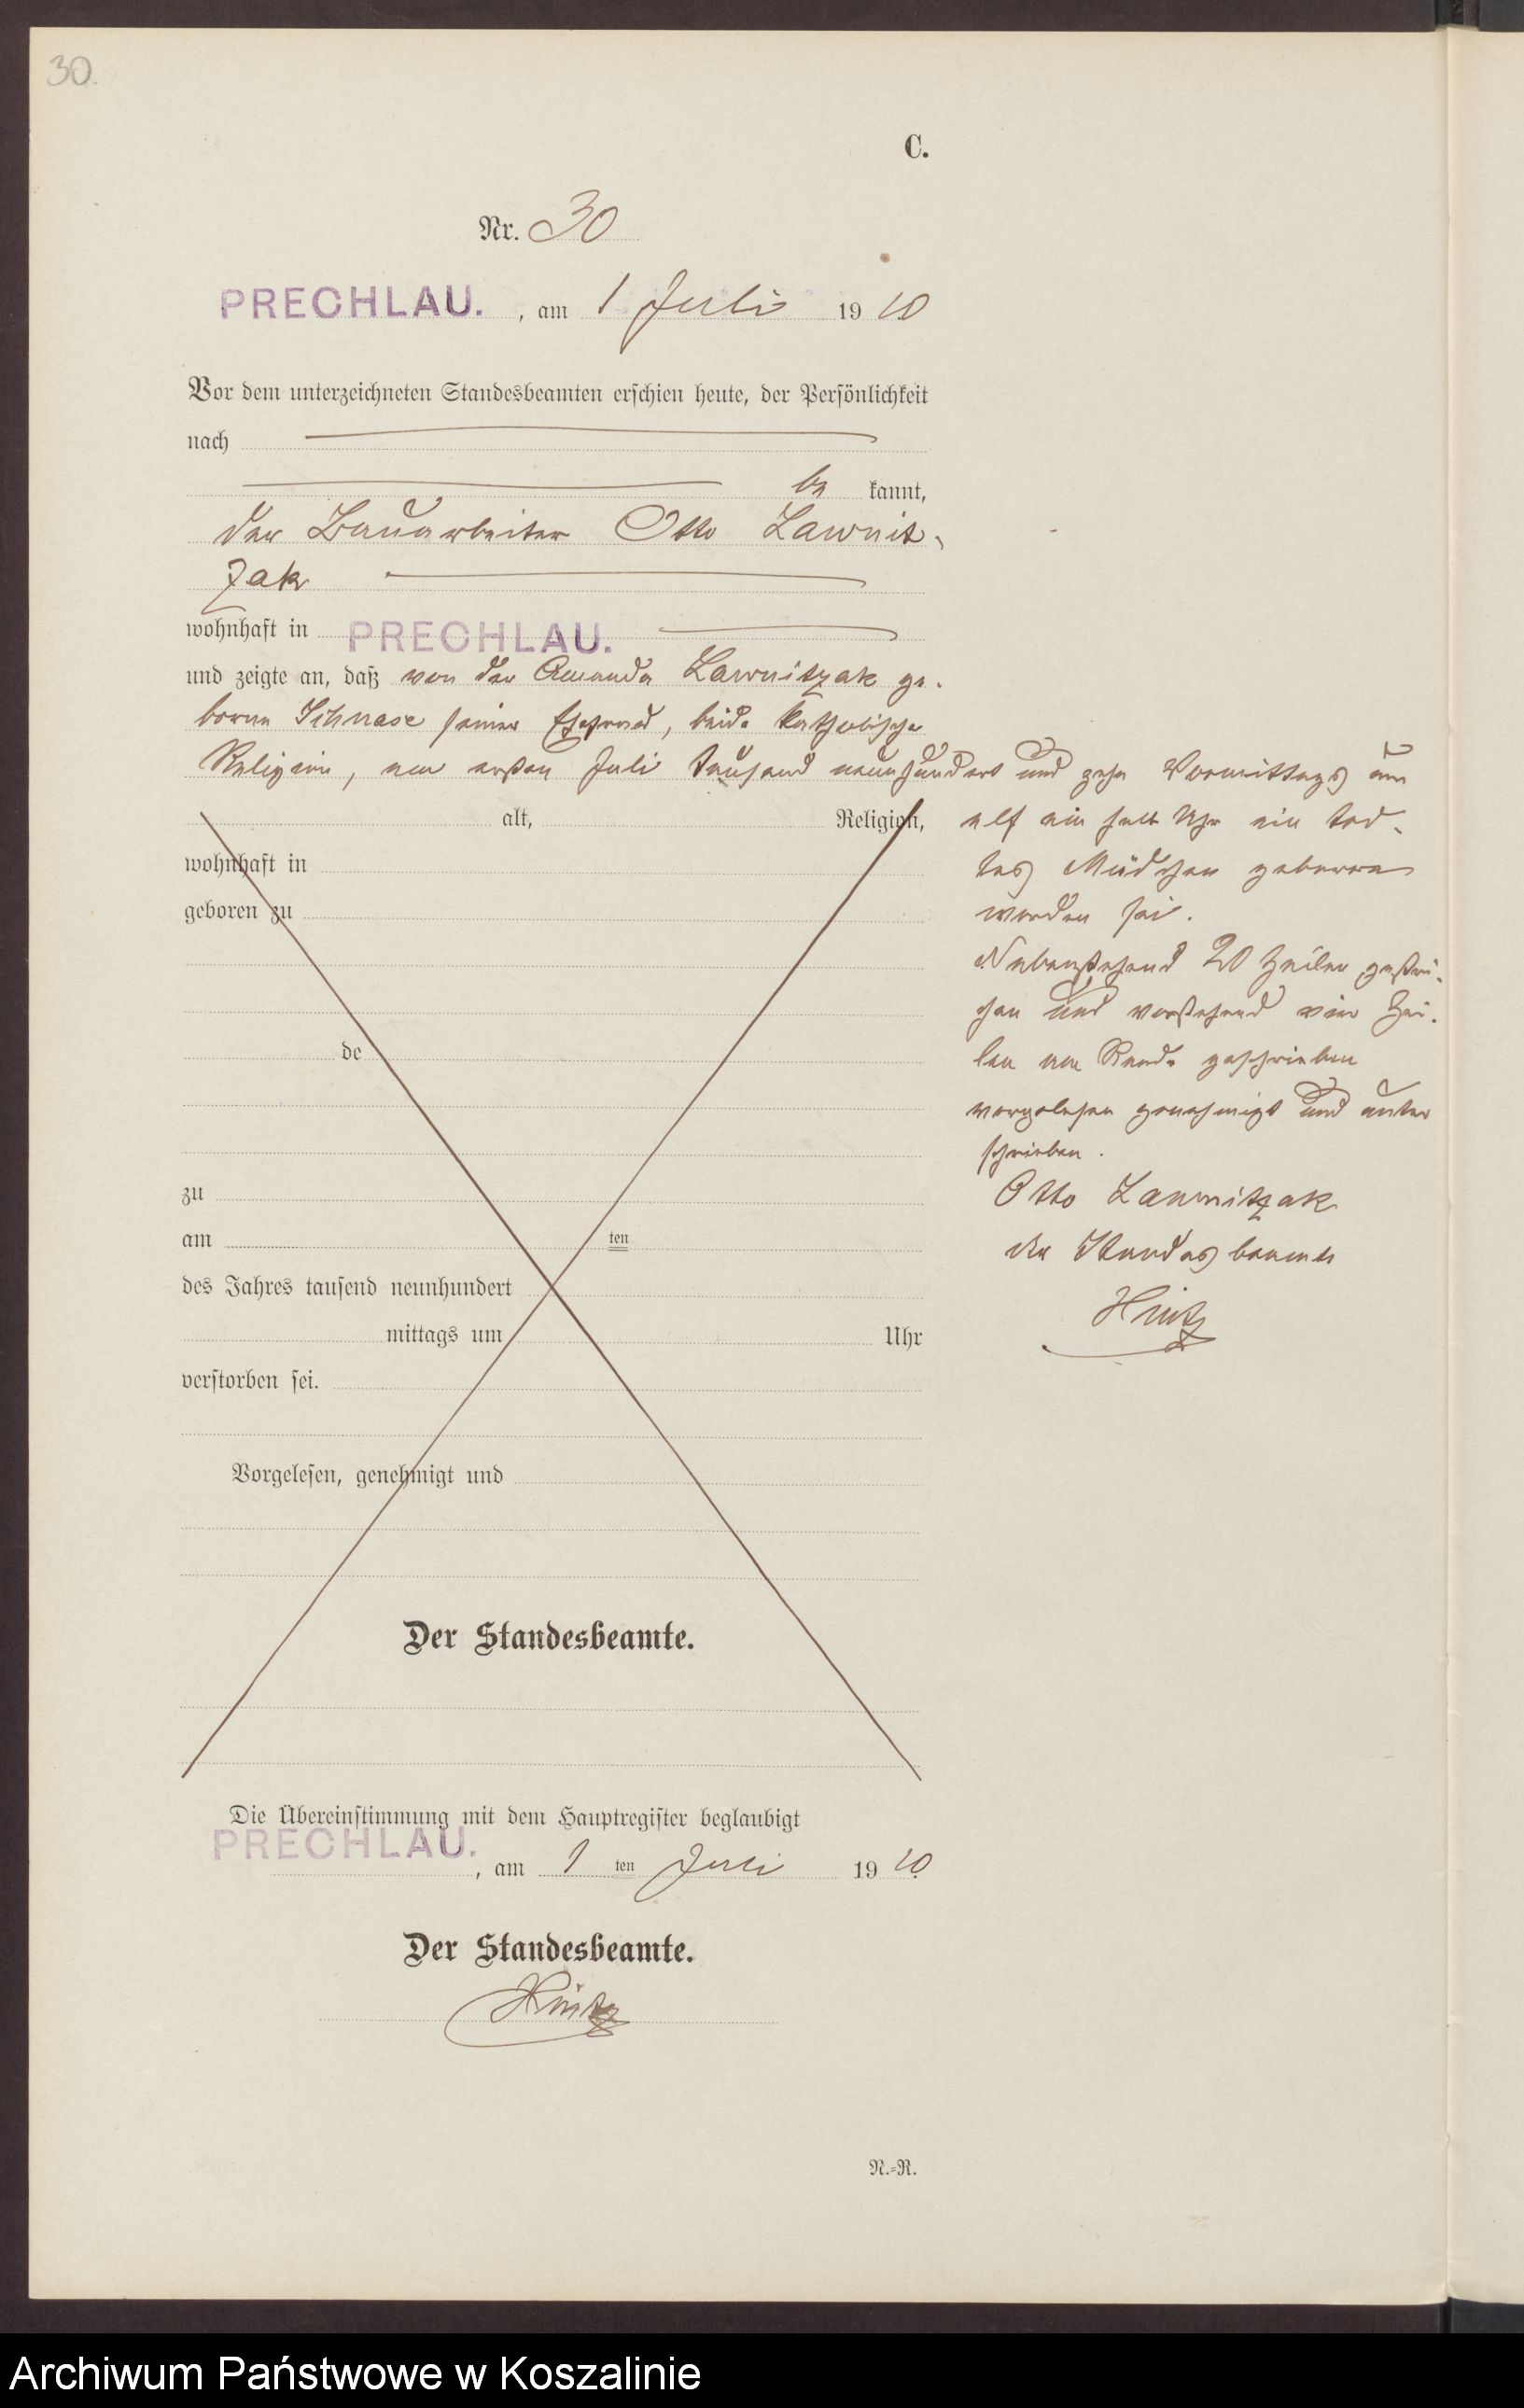 30.
C.
Nr. 30
PRECHLAU. , am 1 Juli 1910
Vor dem unterzeichneten Standesbeamten erschien heute, der Persönlichkeit
nach
be kannt,
der Bauarbeiter Otto Lawnit-
zak
wohnhaft in PRECHLAU.
und zeigte an, daß von der Amanda Lawnitzak ge-
borne Schnase seiner Ehefrau, beide katholischer
Religion, am ersten Juli tausend neunhundert und zehn Vormittags um
alt, Religion,
elf ein halb Uhr ein tod-
wohnhaft in
tes Mädchen geboren
geboren zu
worden sei.
Nebenstehend 20 Zeilen gestri-
chen und vorstehend vier Zei-
de
len am Rande geschrieben
vorgelesen genehmigt und unter
schrieben.
zu
Otto Lawnitzak
am ten
der Standesbeamte
des Jahres tausend neunhundert
Hintz
mittags um Uhr
verstorben sei.
Vorgelesen, genehmigt und
Der Standesbeamte.
Die Übereinstimmung mit dem Hauptregister beglaubigt
PRECHLAU. , am 1 ten Juli 1910
Der Standesbeamte.
Hintz
N.-R.
Archiwum Państwowe w Koszalinie